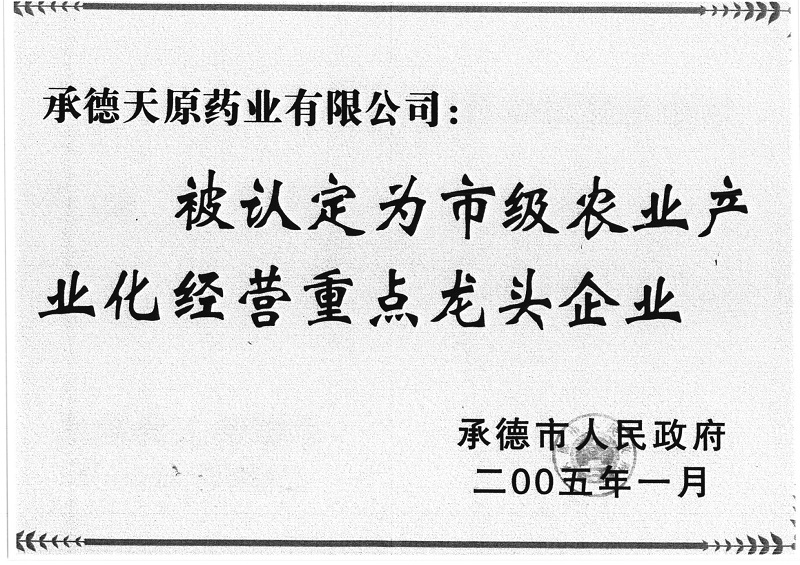 承德天原药业有限公司：
被认定为市级农业产
业化经营重点龙头企业
承德市人民政府
二00五年一月